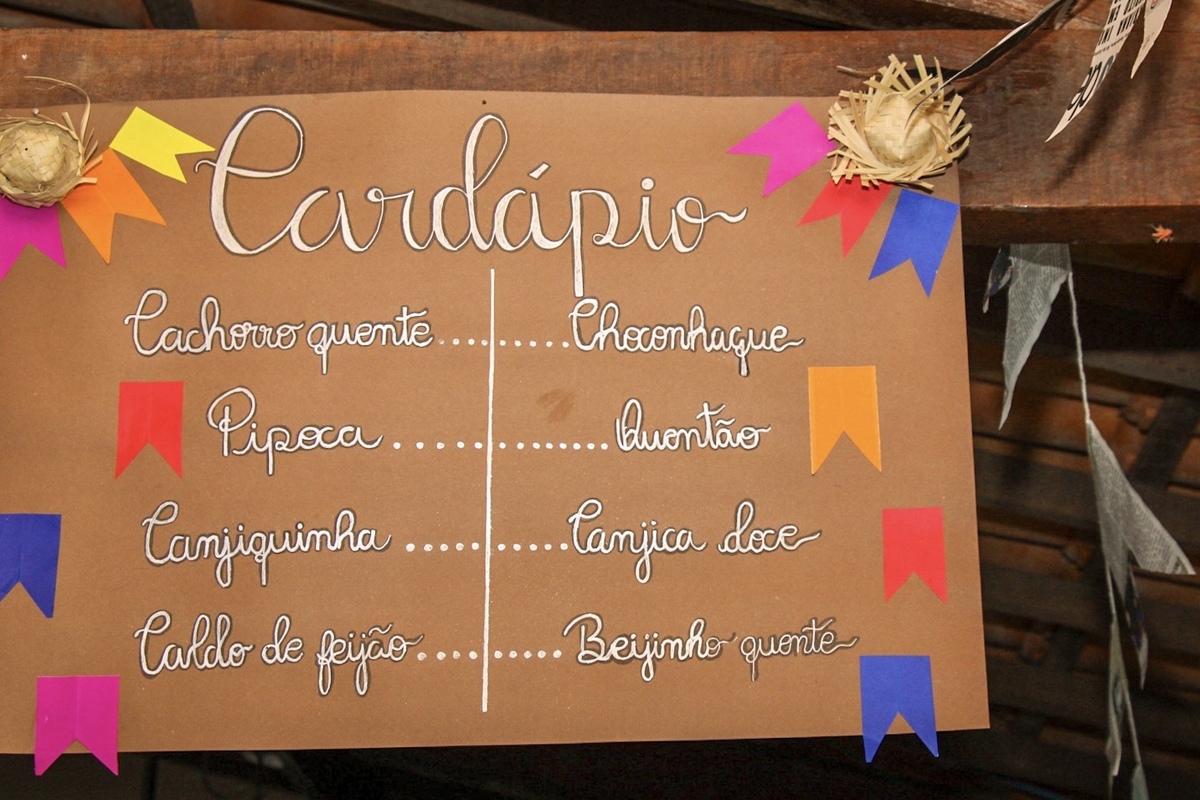 Cardápio
Cachorro quente ......... Choconhaque
Pipoca ............ Quentão
Canjiquinha .......... Canjica doce
Caldo de feijão ......... Beijinho quente